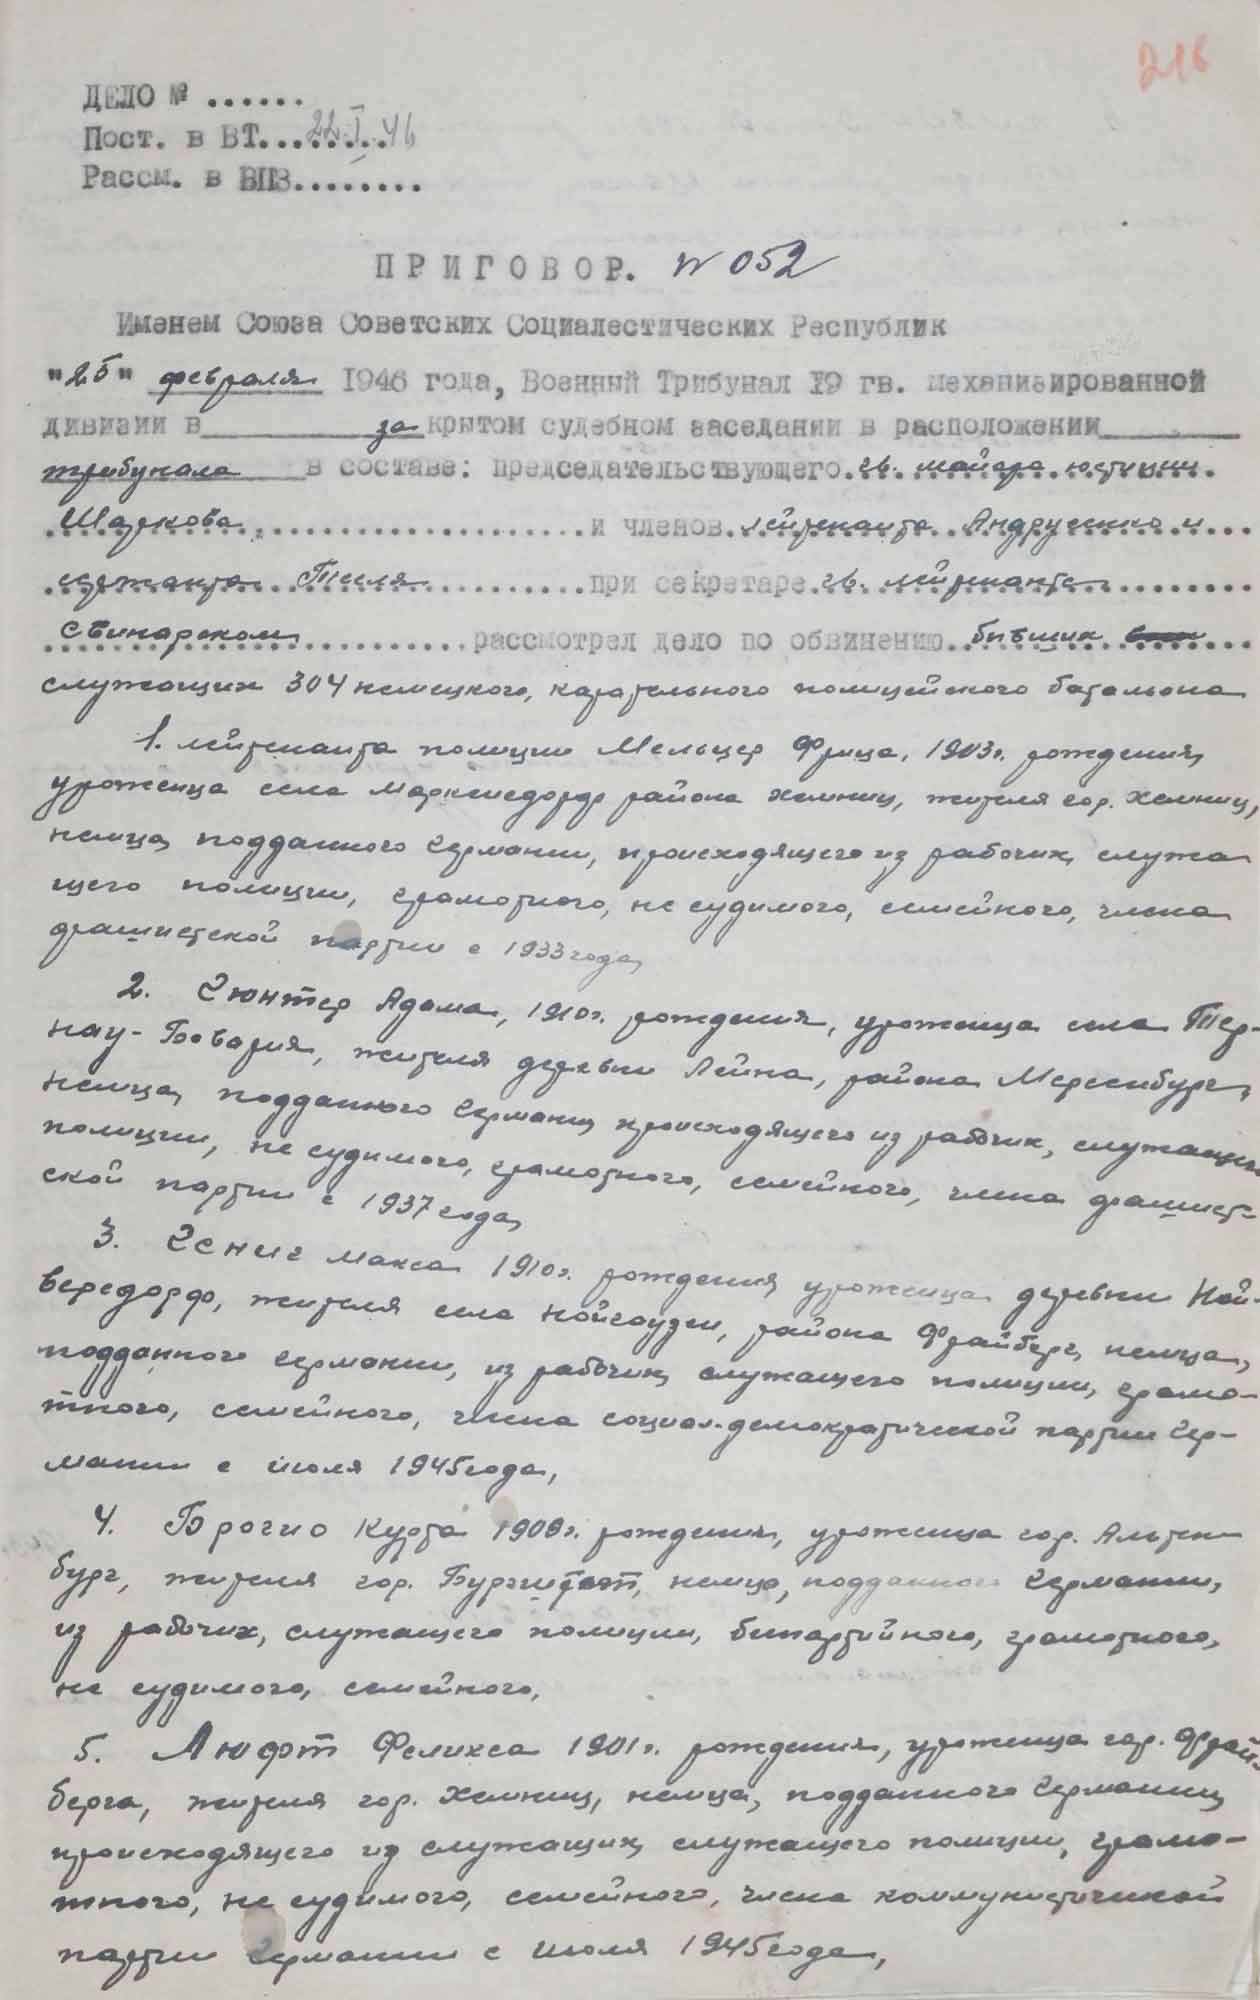 216
ДЕЛО № ......
Пост. в ВТ....22.I.46
Рассм. в ВПЗ........
ПРИГОВОР. № 052
Именем Союза Советских Социалестических Республик
"25" февраля 1946 года, Военный Трибунал 19 гв. механизированной
дивизии в за крытом судебном заседании в расположении
трибунала в составе: председательствующего гв. майора юстиции
Шаркова и членов лейтенанта Андрусенко и
сержанта Теля при секретаре гв. лейтенанте
Свинарском рассмотрел дело по обвинению бывших
служащих 304 немецкого, карательного полицейского батальона
1. лейтенанта полиции Мельцер Фрица, 1903г. рождения,
уроженца села Маркенсдорф района Хемниц, жителя гор. Хемниц,
немца, подданного Германии, происходящего из рабочих, служа
щего полиции, грамотного, не судимого, семейного, члена
фашистской партии с 1933 года,
2. Гюнтер Адама, 1910г. рождения, уроженца села Тер-
нау-Бовария, жителя деревни Лейна, района Мерсибург,
немца, подданного Германии, происходящего из рабочих, служащего
полиции, не судимого, грамотного, семейного, члена фашист-
ской партии с 1937 года,
3. Гениг Макса 1910г. рождения, уроженца деревни Ной-
вередорф, жителя села Нойгаузен, района Фрайберг, немца,
подданного Германии, из рабочих, служащего полиции, грамо-
тного, семейного, члена социал-демократической партии Гер-
мании с июля 1945 года,
4. Брогио Курта 1906г. рождения, уроженца гор. Альтен
бург, жителя гор. Бургштет, немца, подданного Германии,
из рабочих, служащего полиции, беспартийного, грамотного,
не судимого, семейного,
5. Люфт Феликса 1901г. рождения, уроженца гор. Фрай-
берга, жителя гор. Хемниц, немца, подданного Германии,
происходящего из служащих, служащего полиции, грамо-
тного, не судимого, семейного, члена коммунистической
партии Германии с июля 1945 года,